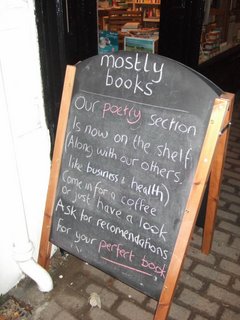 mostly
books
Our poetry section
Is now on the shelf
(Along with our others.
like business & health)
Come in for a coffee
or just have a look
Ask for recomendations
for your perfect book